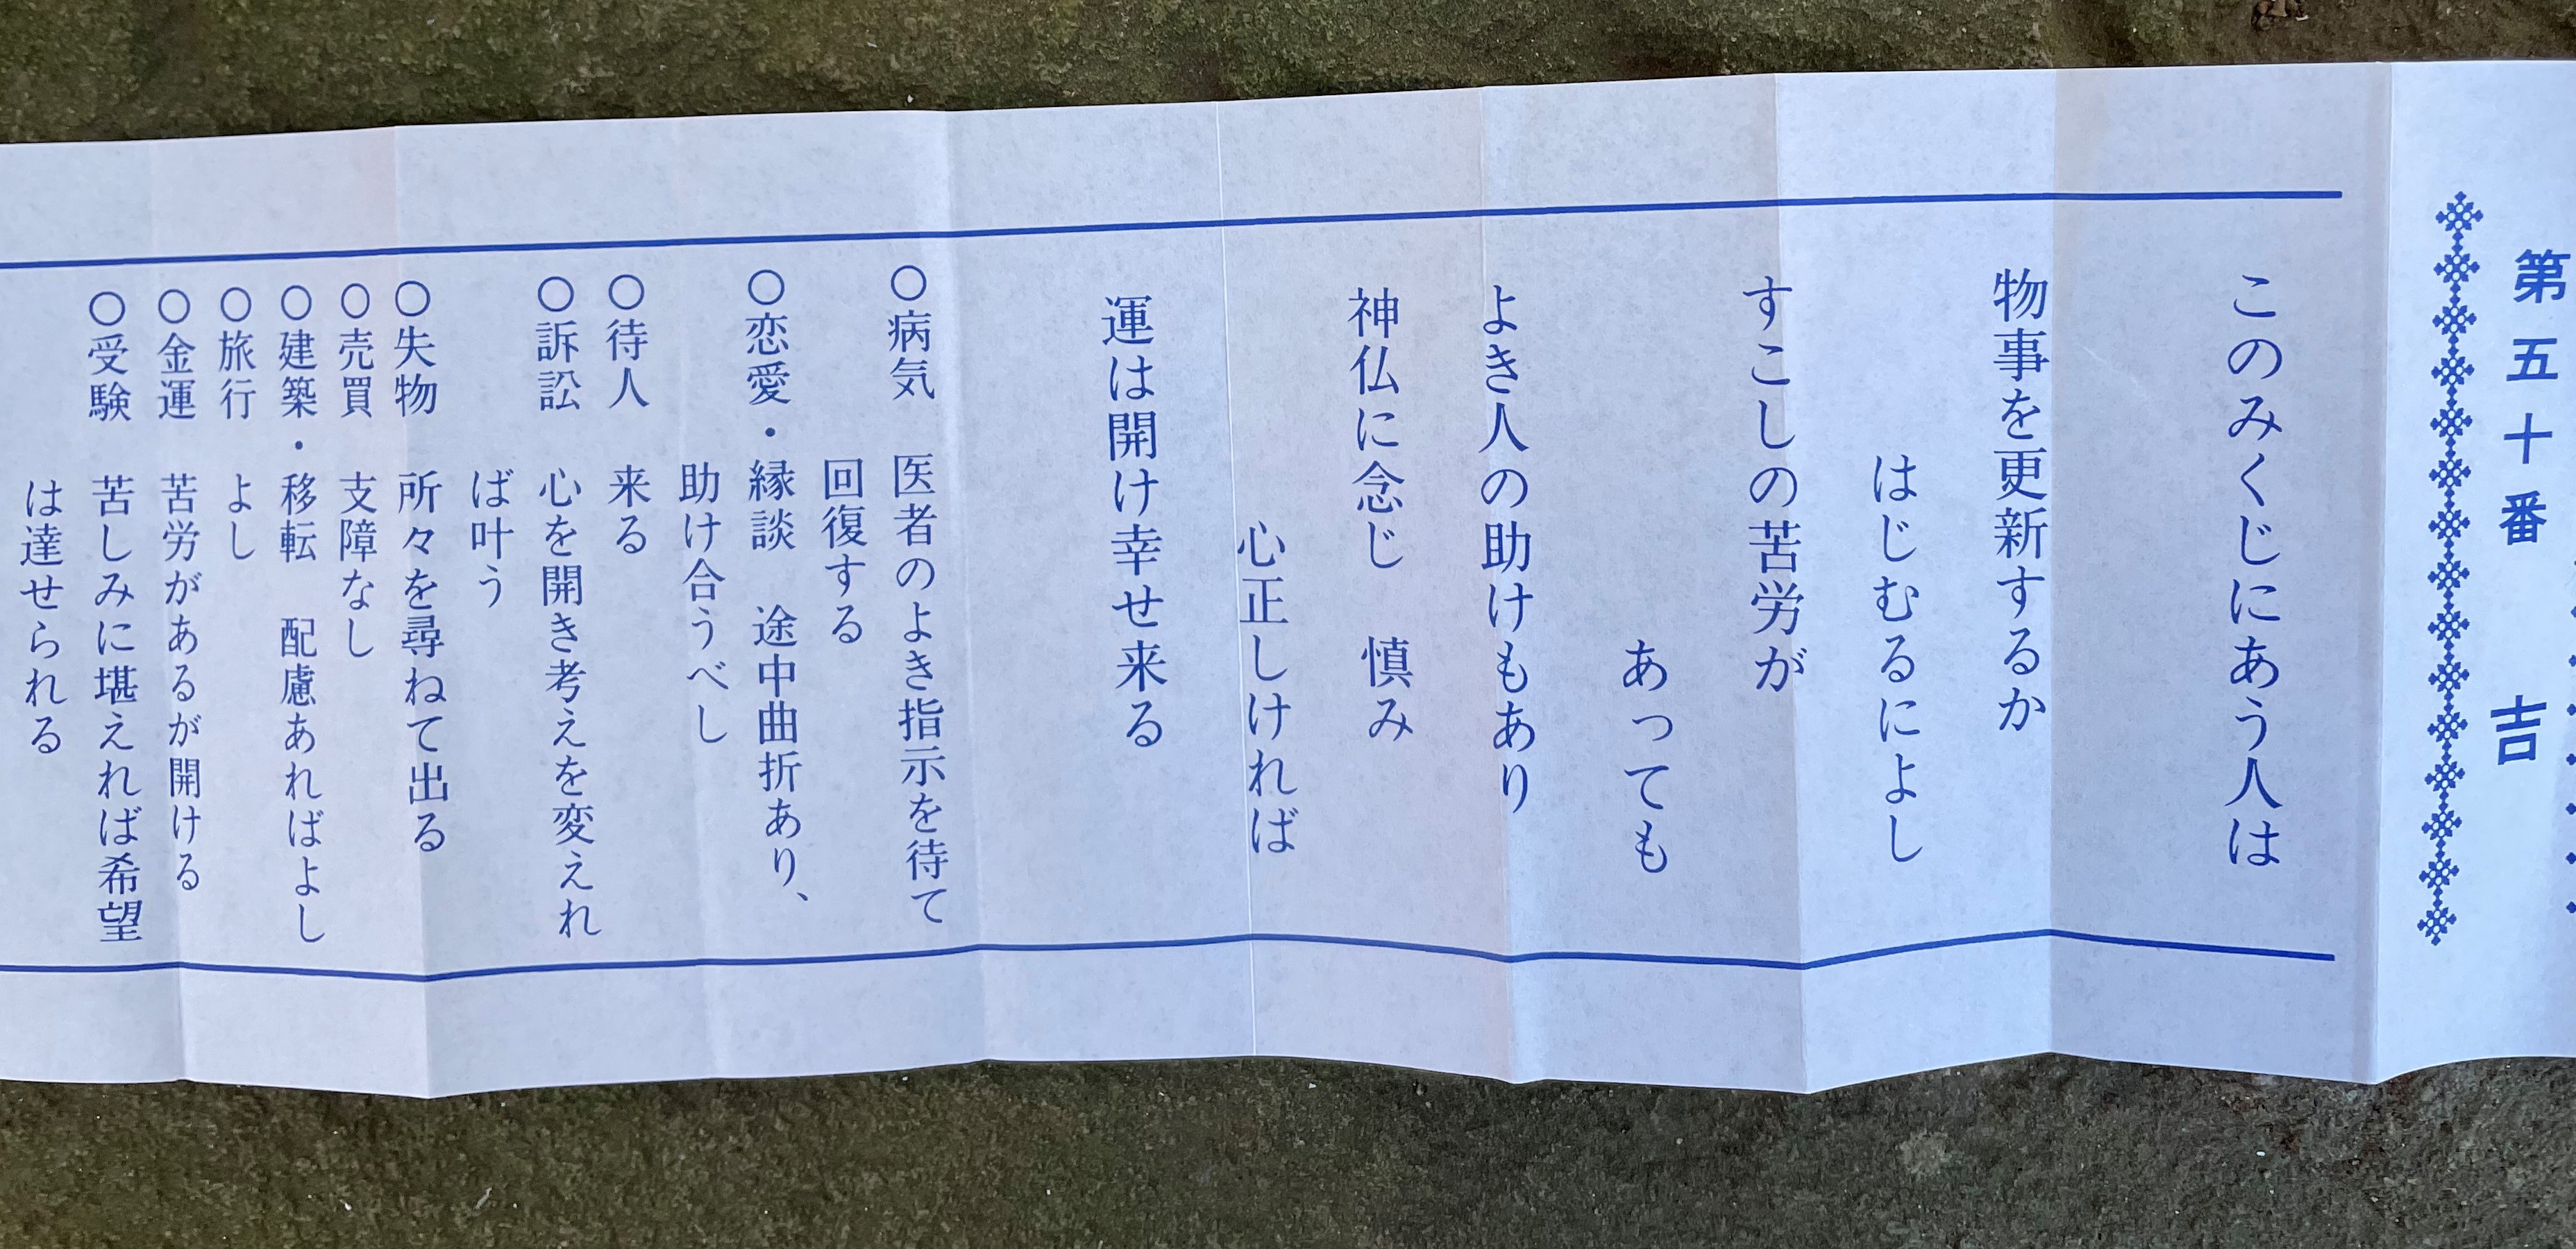 第五十番　吉
このみくじにあう人は
物事を更新するか
はじむるによし
すこしの苦労が
あっても
よき人の助けもあり
神仏に念じ　慎み
心正しければ
運は開け幸せ来る
○病気　医者のよき指示を待て
回復する
○恋愛・縁談　途中曲折あり、
助け合うべし
○待人　来る
○訴訟　心を開き考えを変えれ
ば叶う
○失物　所々を尋ねて出る
○売買　支障なし
○建築・移転　配慮あればよし
○旅行　よし
○金運　苦労があるが開ける
○受験　苦しみに堪えれば希望
は達せられる